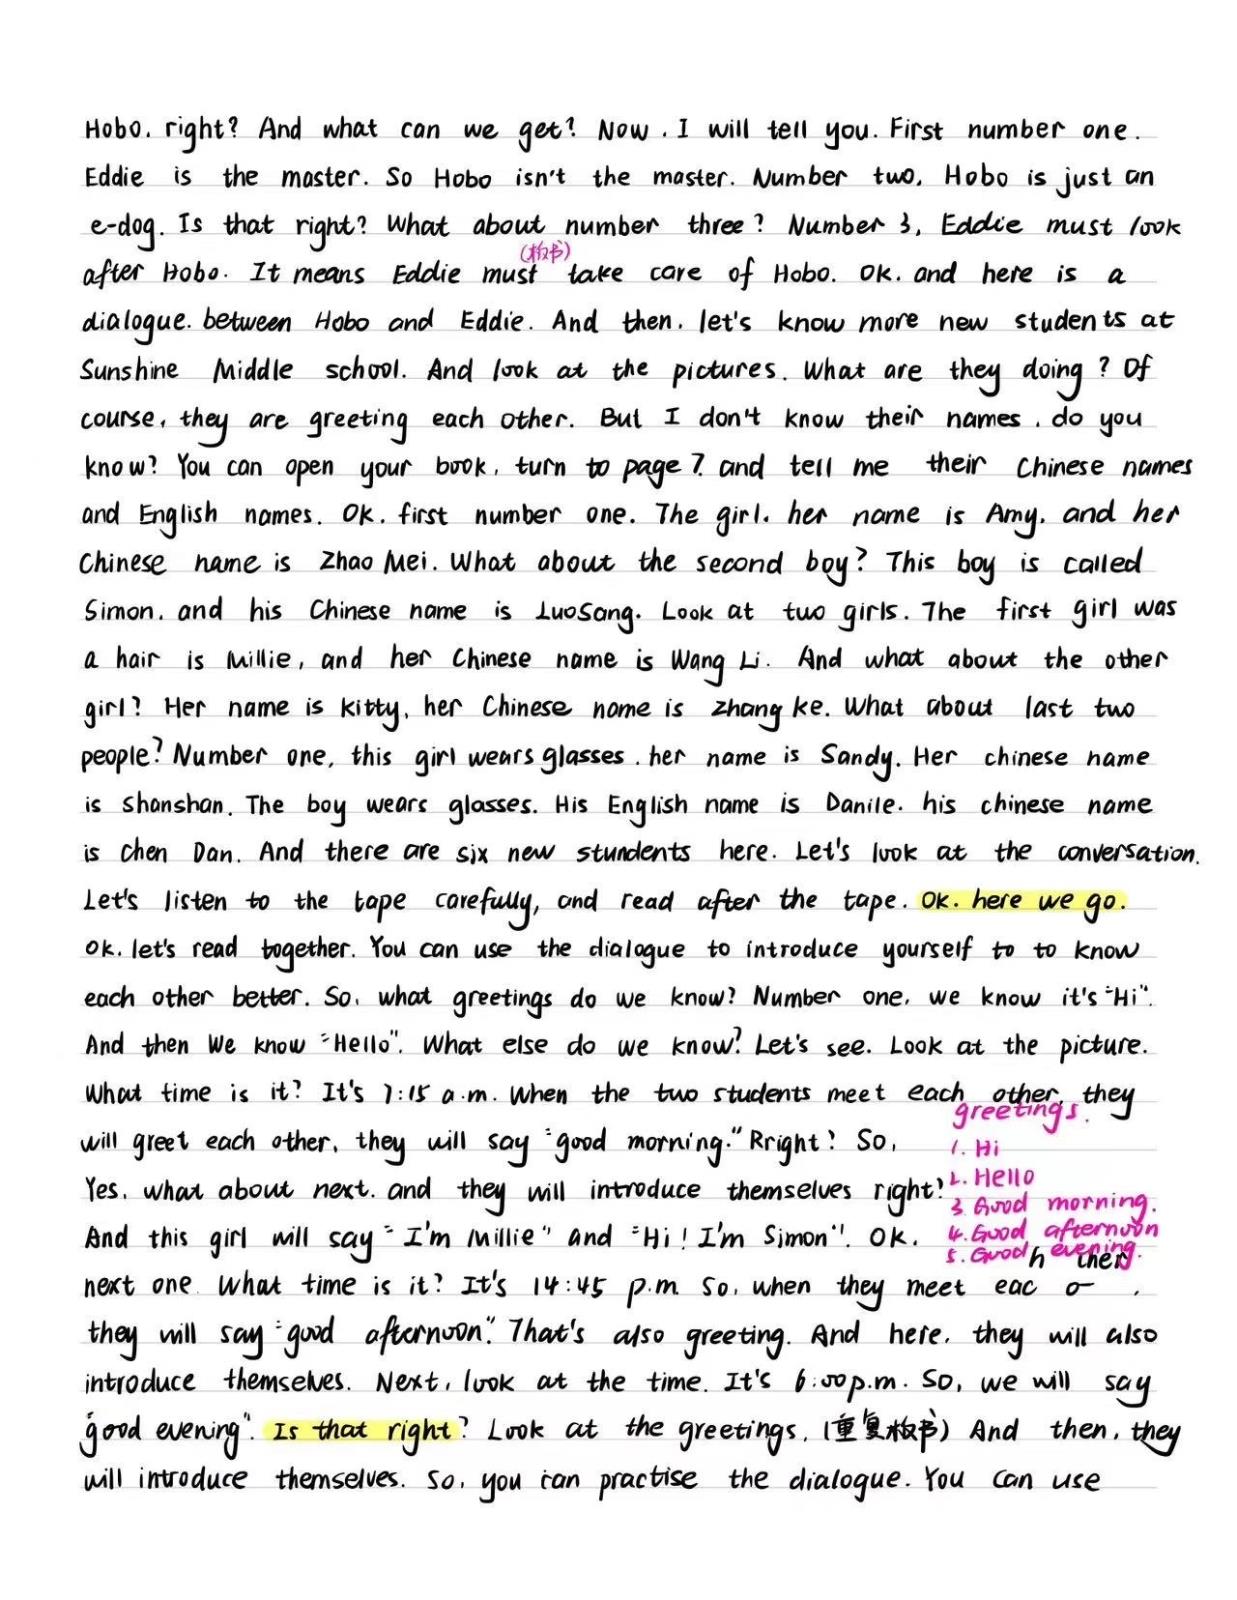 Hobo. right? And what can we get? Now. I will tell you. First number one.
Eddie is the master. So Hobo isn't the master. Number two, Hobo is just an
e-dog. Is that right? What about number three? Number 3, Eddie must look
(板书)
after Hobo. It means Eddie must take care of Hobo. Ok. and here is a
dialogue. between Hobo and Eddie. And then. let's know more new students at
Sunshine Middle school. And look at the pictures. What are they doing? Of
course, they are greeting each other. But I don't know their names. do you
know? You can open your book, turn to page 7. and tell me their Chinese names
and English names. Ok. first number one. The girl. her name is Amy. and her
Chinese name is Zhao Mei. What about the second boy? This boy is called
Simon. and his Chinese name is LuoSang. Look at two girls. The first girl was
a hair is Millie, and her Chinese name is Wang Li. And what about the other
girl? Her name is kitty, her Chinese name is zhang ke. What about last two
people? Number one, this girl wears glasses. her name is Sandy. Her chinese name
is shanshan. The boy wears glasses. His English name is Danile. his chinese name
is chen Dan. And there are six new stundents here. Let's look at the conversation.
Let's listen to the tape carefully, and read after the tape. Ok. here we go.
ok. let's read together. You can use the dialogue to introduce yourself to to know
each other better. So, what greetings do we know? Number one, we know it's "Hi".
And then We know "Hello". What else do we know? Let's see. Look at the picture.
What time is it? It's 7:15 a.m. When the two students meet each other, they
greetings.
will greet each other, they will say "good morning." Rright? So,
1. Hi
Yes, what about next. and they will introduce themselves right?
2. Hello
3. Good morning.
And this girl will say "I'm Millie" and "Hi! I'm Simon". OK.
4. Good afternoon
5. Good evening.
h ther
next one. What time is it? It's 14:45 p.m. So, when they meet eac o .
they will say "good afternoon." That's also greeting. And here, they will also
introduce themselves. Next, look at the time. It's 6:00p.m. So, we will say
"good evening". Is that right? Look at the greetings. (重复板书) And then, they
will introduce themselves. So, you can practise the dialogue. You can use